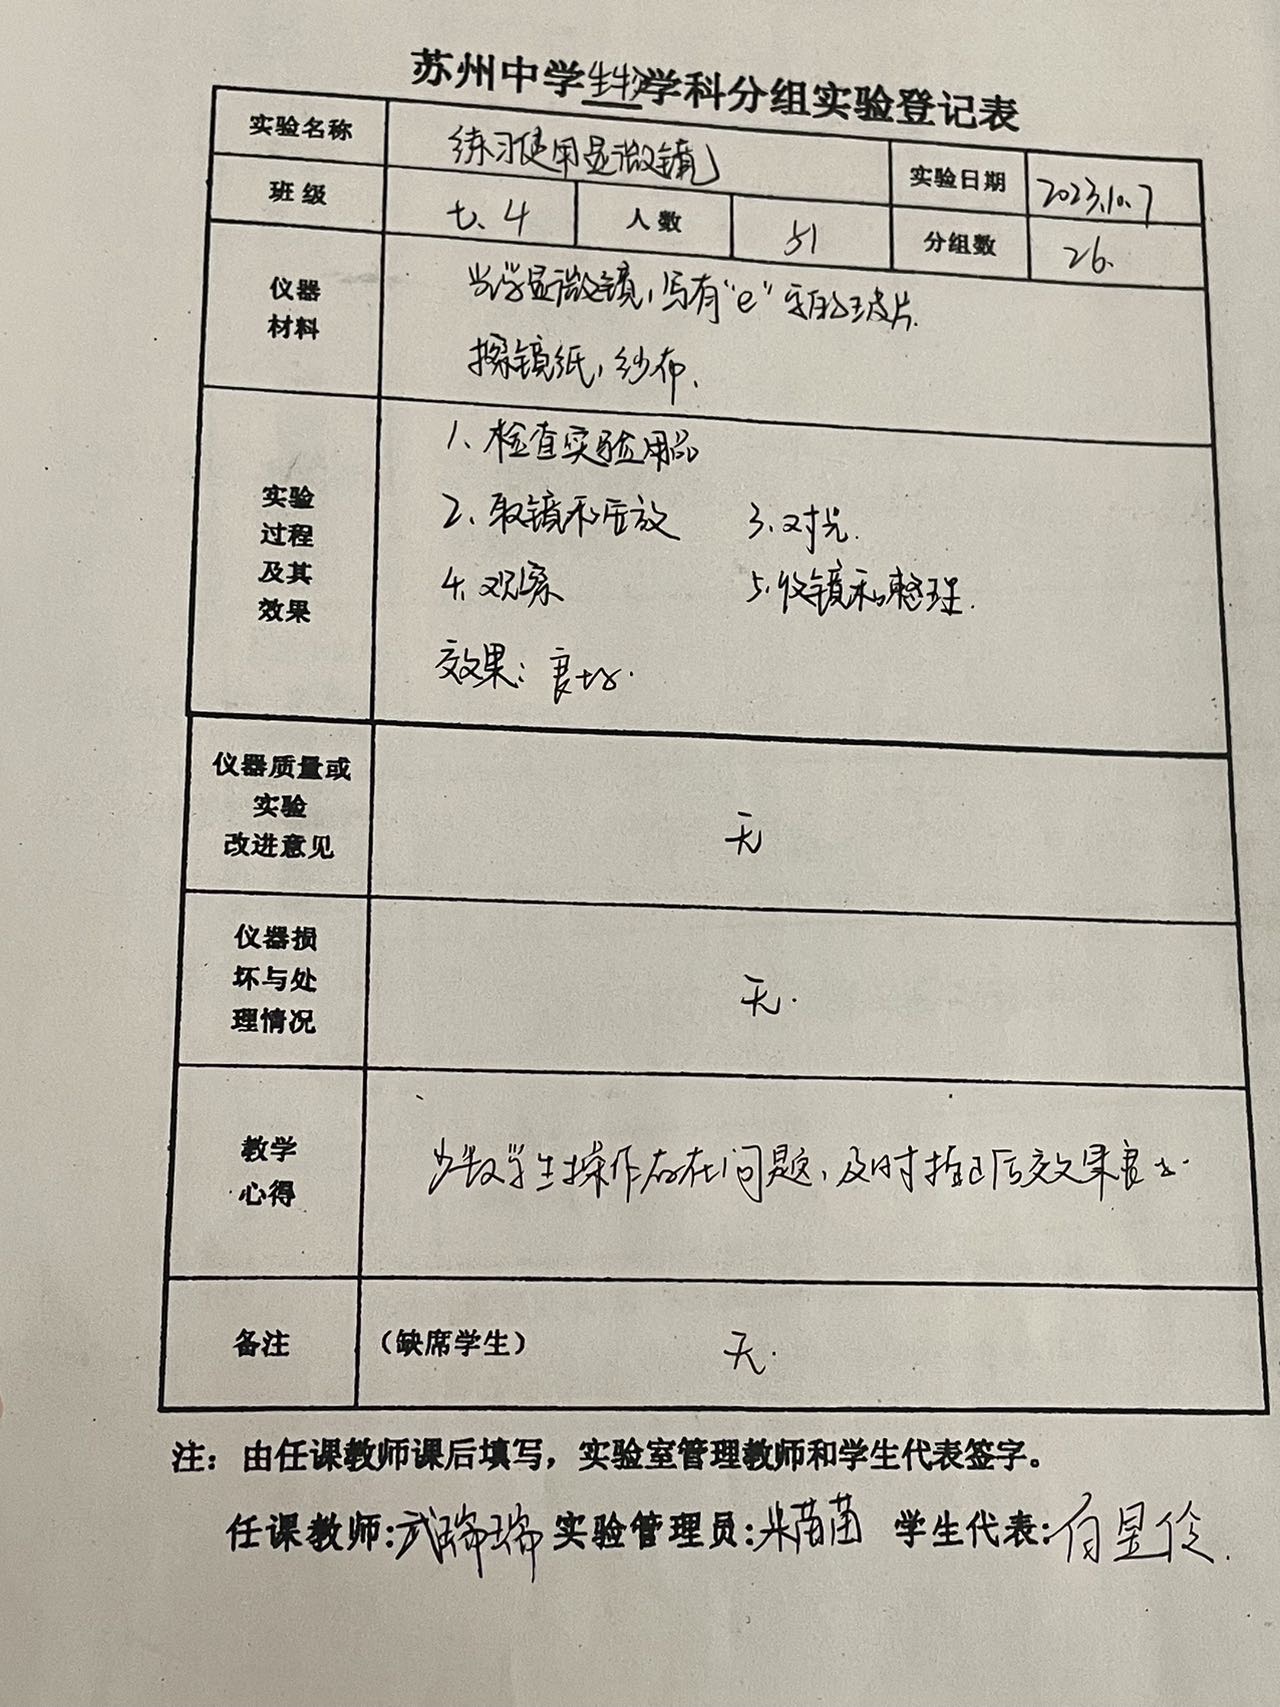 苏州中学生物学科分组实验登记表
实验名称 练习使用显微镜 实验日期 2023.10.7
班级 七、4 人数 51 分组数 26.
仪器材料 光学显微镜，写有“e”字的玻片.
擦镜纸，纱布、
实验过程及其效果
1、检查实验用品
2、取镜和安放 3、对光.
4、观察 5、收镜和整理.
效果：良好.
仪器质量或
实验
改进意见
无
仪器损
坏与处
理情况
无.
教学
心得
少数学生操作存在问题，及时指正后效果良好.
备注 （缺席学生） 无.
注：由任课教师课后填写，实验室管理教师和学生代表签字。
任课教师:武瑞瑞 实验管理员:苗苗 学生代表:白昱伶.